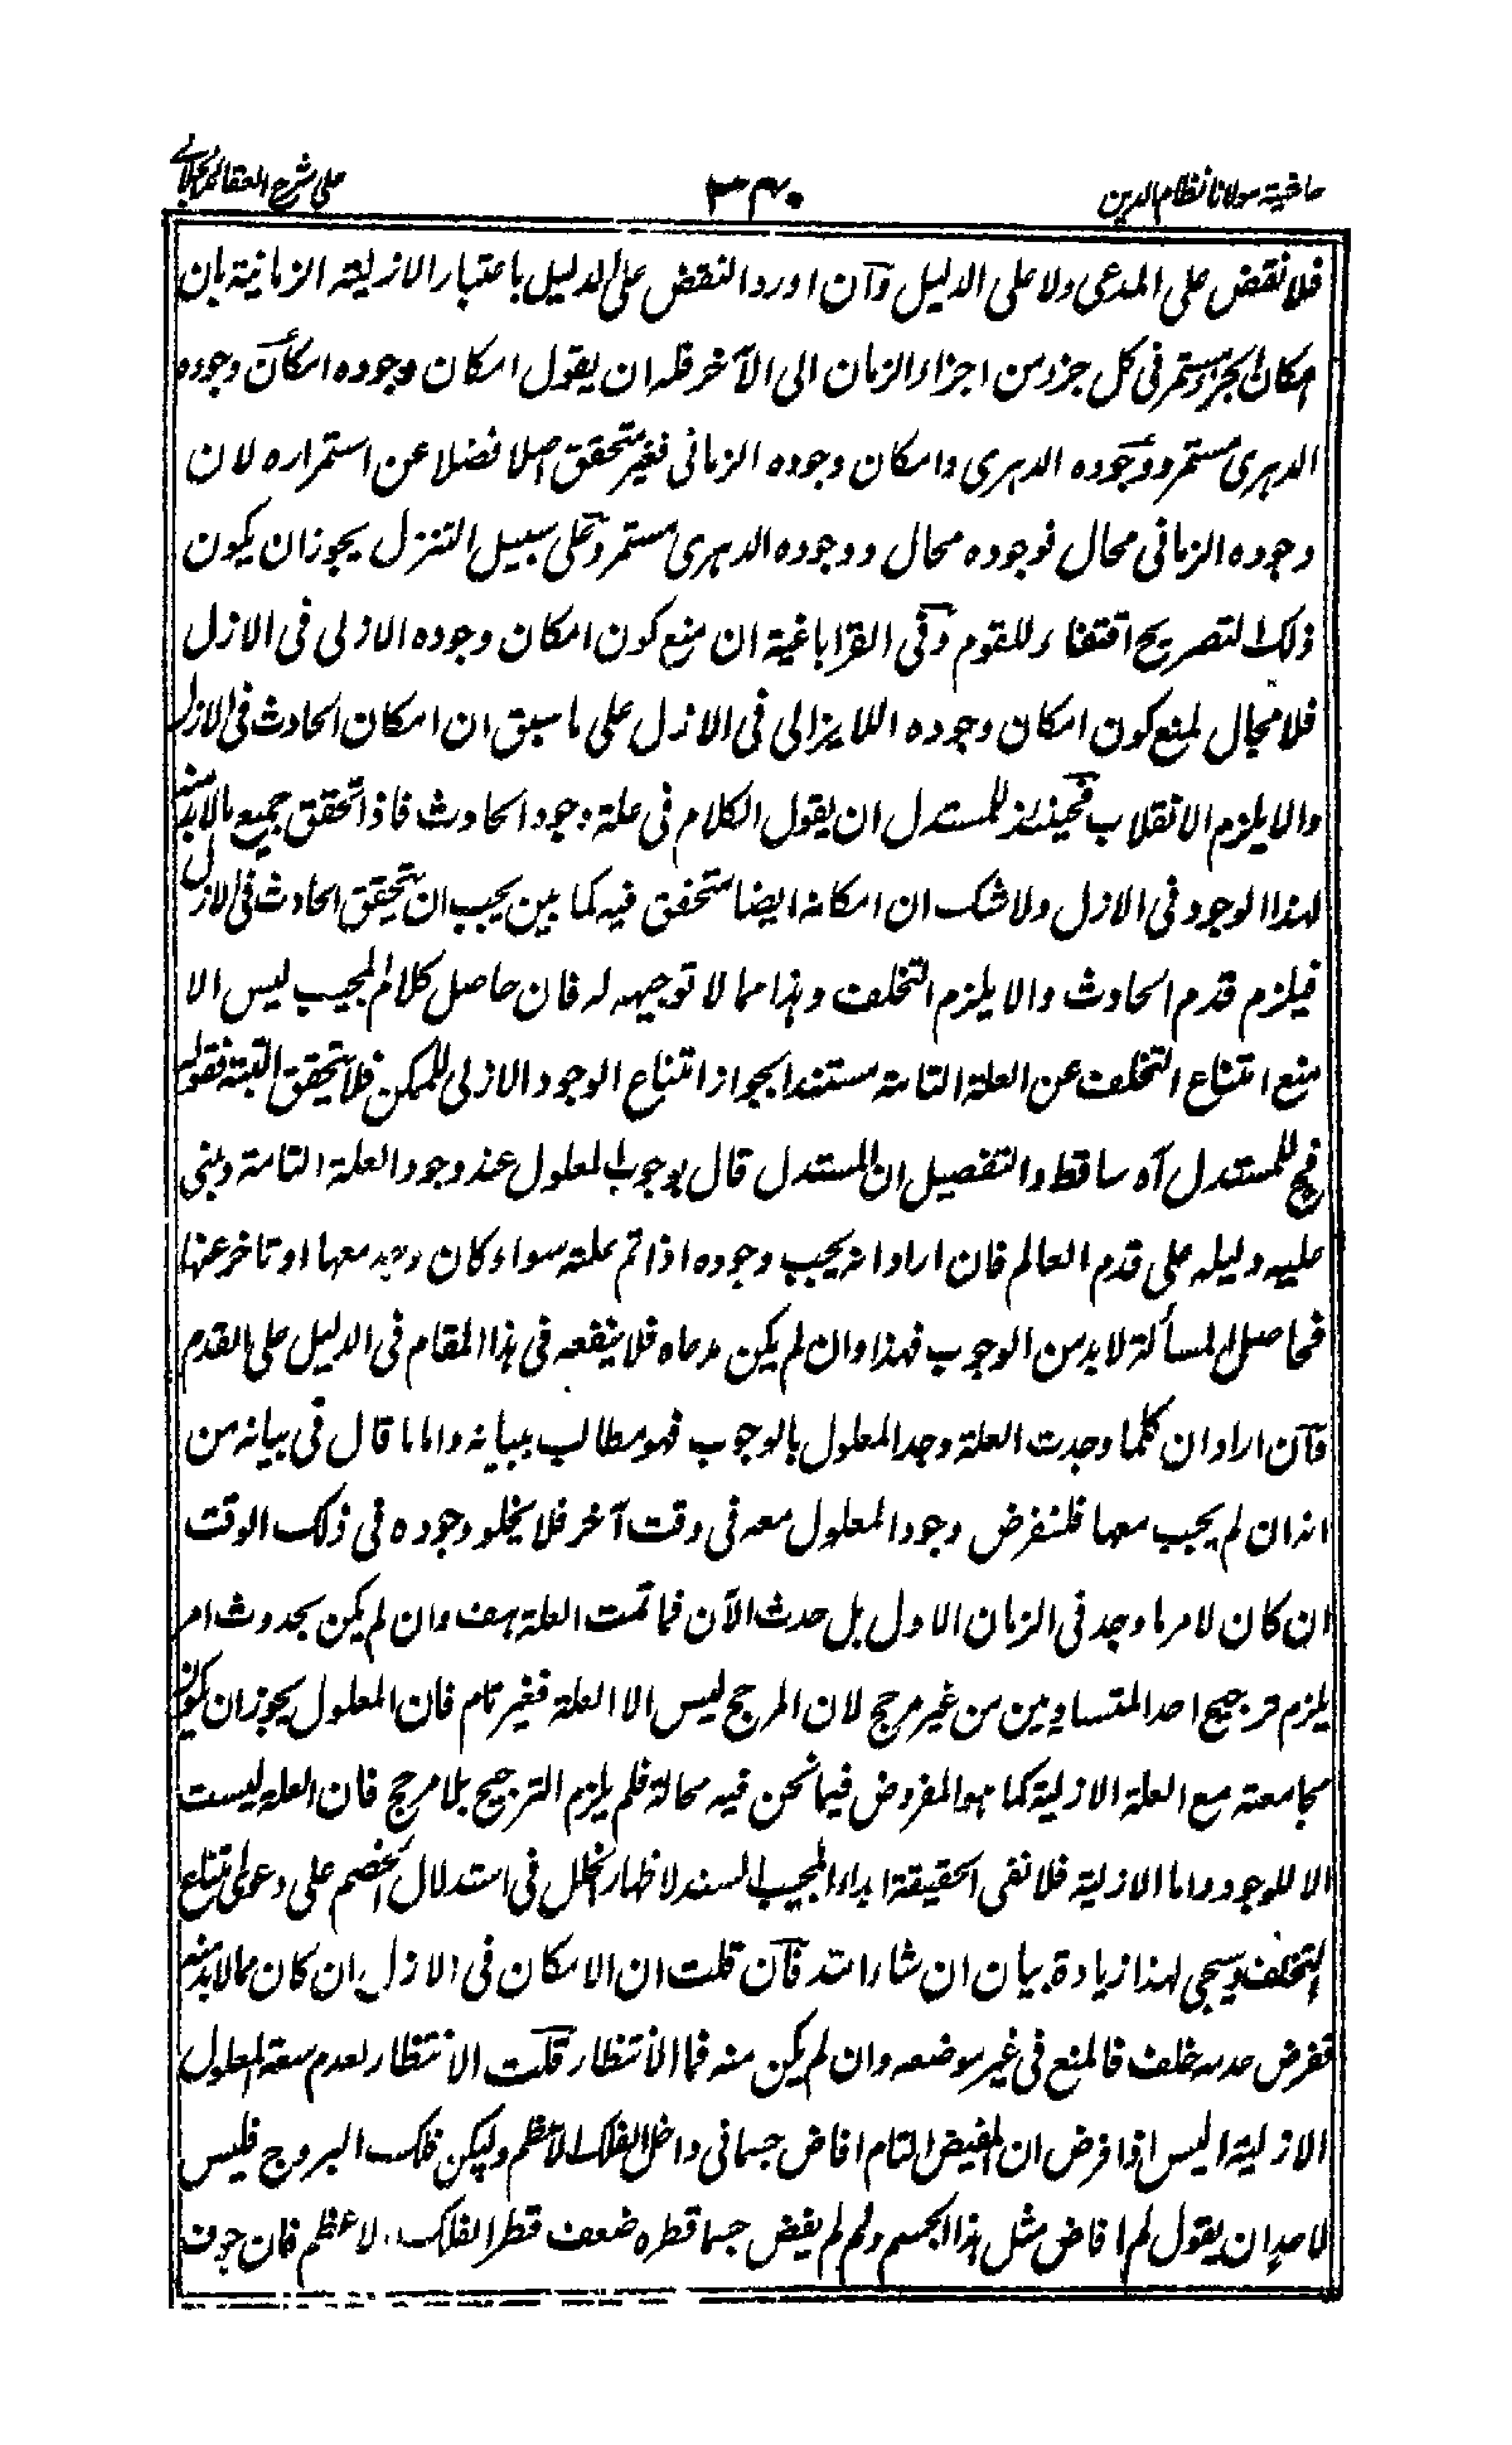 حاشية مولانا نظام الدين
٣٤٠
على شرح العقائد
فلا نقض على المدعى ولا على الدليل وان اورد النقض على الدليل باعتبار الازلية الزمانية بان
امكان الجزء مستمر فى كل جزء من اجزاء الزمان الى الآخر فله ان يقول امكان وجوده امكان وجوده
الدهرى مستمر ووجوده الدهرى وامكان وجوده الزمانى فغير متحقق اصلا فضلا عن استمراره لان
وجوده الزمانى محال فوجوده محال ووجوده الدهرى مستمر وعلى سبيل التنزل يجوز ان يكون
ذلك التصريح اقتفاء للقوم وفى القراباغية ان منع كون امكان وجوده الازلى فى الازل
فلا مجال لمنع كون امكان وجوده اللايزالى فى الازل على ما سبق ان امكان الحادث فى الازل
والا يلزم الانقلاب فحينئذ للمستدل ان يقول الكلام فى علة وجود الحادث فاذا تحقق جميع ما لا بد منه
لهذا الوجود فى الازل ولا شك ان امكانه ايضا متحقق فيه كما بين يجب ان يتحقق الحادث فى الازل
فيلزم قدم الحادث والا يلزم التخلف وهذا مما لا توجيه له فان حاصل كلام المجيب ليس الا
منع امتناع التخلف عن العلة التامة مستندا بجواز امتناع الوجود الازلى للممكن فلا يتحقق البتة فقوله
فح للمستدل آه ساقط والتفصيل ان المستدل قال بوجوب المعلول عند وجود العلة التامة وبنى
عليه دليله على قدم العالم فان اراد انه يجب وجوده اذا تم علته سواء كان وجد معها او تاخر عنها
فحاصل المسألة لا بد من الوجوب فهذا وان لم يكن مدعاه فلا ينفعه فى هذا المقام فى الدليل على القدم
وان اراد ان كلما وجدت العلة وجد المعلول بالوجوب فهو مطالب ببيانه واما ما قال فى بيانه من
انه ان لم يجب معها فلنفرض وجود المعلول معه فى وقت آخر فلا يخلو وجوده فى ذلك الوقت
ان كان لامر ما وجد فى الزمان الاول بل حدث الآن فما تمت العلة هف وان لم يكن بحدوث امر
يلزم ترجيح احد المتساويين من غير مرجح لان المرجح ليس الا العلة فغير تام فان المعلول يجوز ان يكون
مجامعته مع العلة الازلية كما هو المفروض فيما نحن فيه محالة فلم يلزم الترجيح بلا مرجح فان العلة ليست
الا للوجود واما الازلية فلا نفى الحقيقة ابداء المجيب السند لاظهار الخلل فى استدلال الخصم على دعوى امتناع
التخلف وسيجى لهذا زيادة بيان ان شاء الله فان قلت ان الامكان فى الازل ان كان مما لا بد منه
ففرض عدمه خلف فالمنع فى غير موضعه وان لم يكن منه فما الانتظار قلت الانتظار لعدم سعة المعلول
الازلية اليس اذا فرض ان المفيض التام افاض جسما فى داخل الفلك الاعظم وليكن فلك البروج فليس
لاحد ان يقول لم افاض مثل هذا الجسم ولم لم يفض جسما قطره ضعف قطر الفلك الاعظم فان جوف